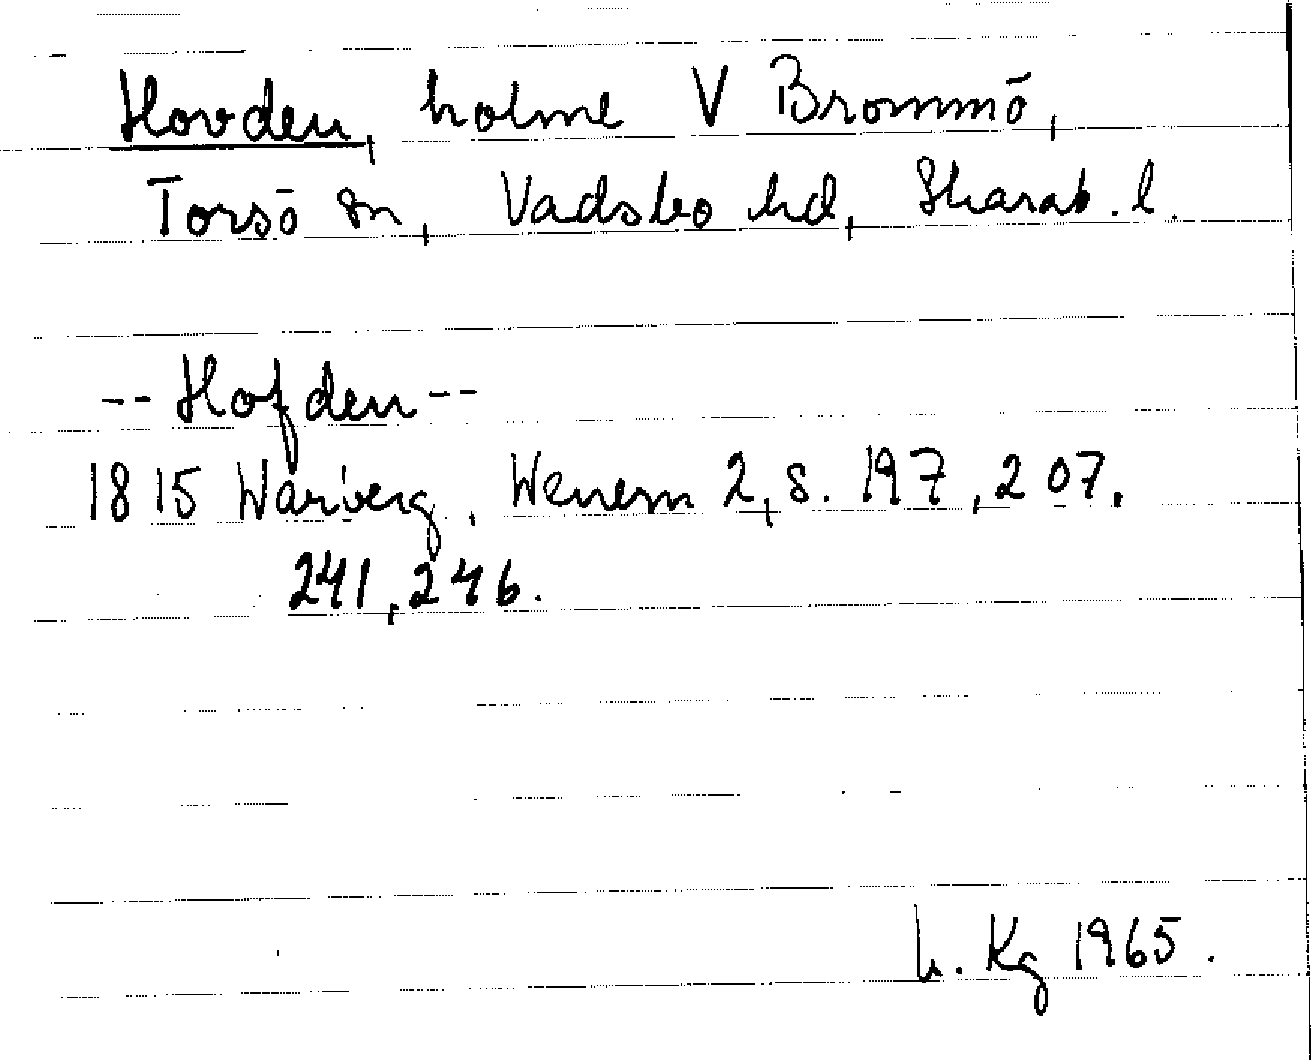 Hovden, holme V Brommö,
Torsö sn, Vadsbo hd, Skarab. l.
-- Hofden --
1815 Warberg, Wenern 2, s. 197, 207,
241, 246.
h. Kg 1965.